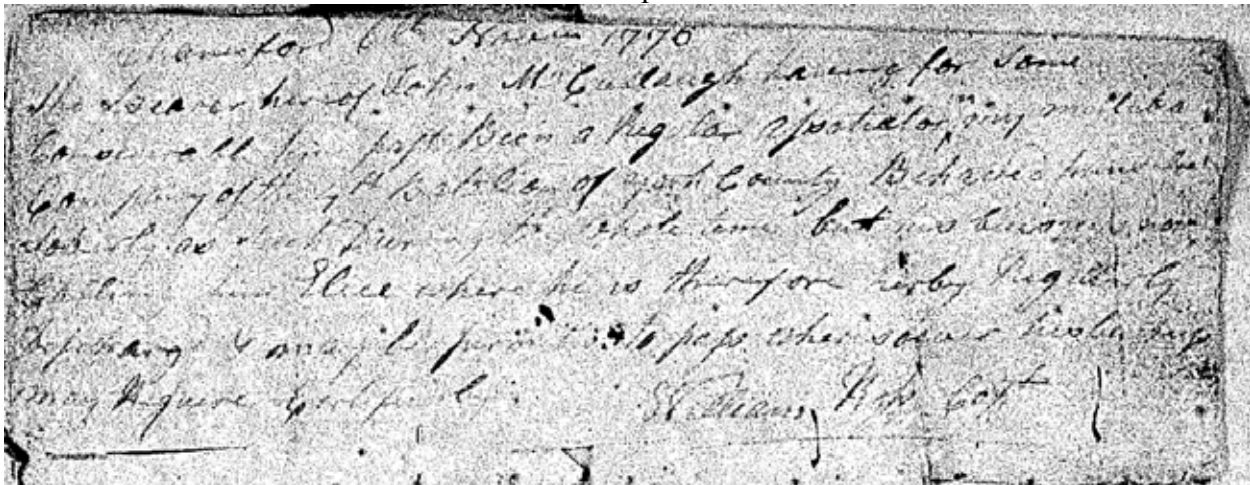 Chanceford 6th Novem 1776
The Bearer hereof John McCullaugh having for some
Considerable time past Been a Regular in my militia
Company of the 7th Batalion of York County Behaved himself
as such During the whole time but his business now
him Elce where he is therefore herby Regularly
& may be permitted to pass wheresoever his business
may Require
William Ross Capt